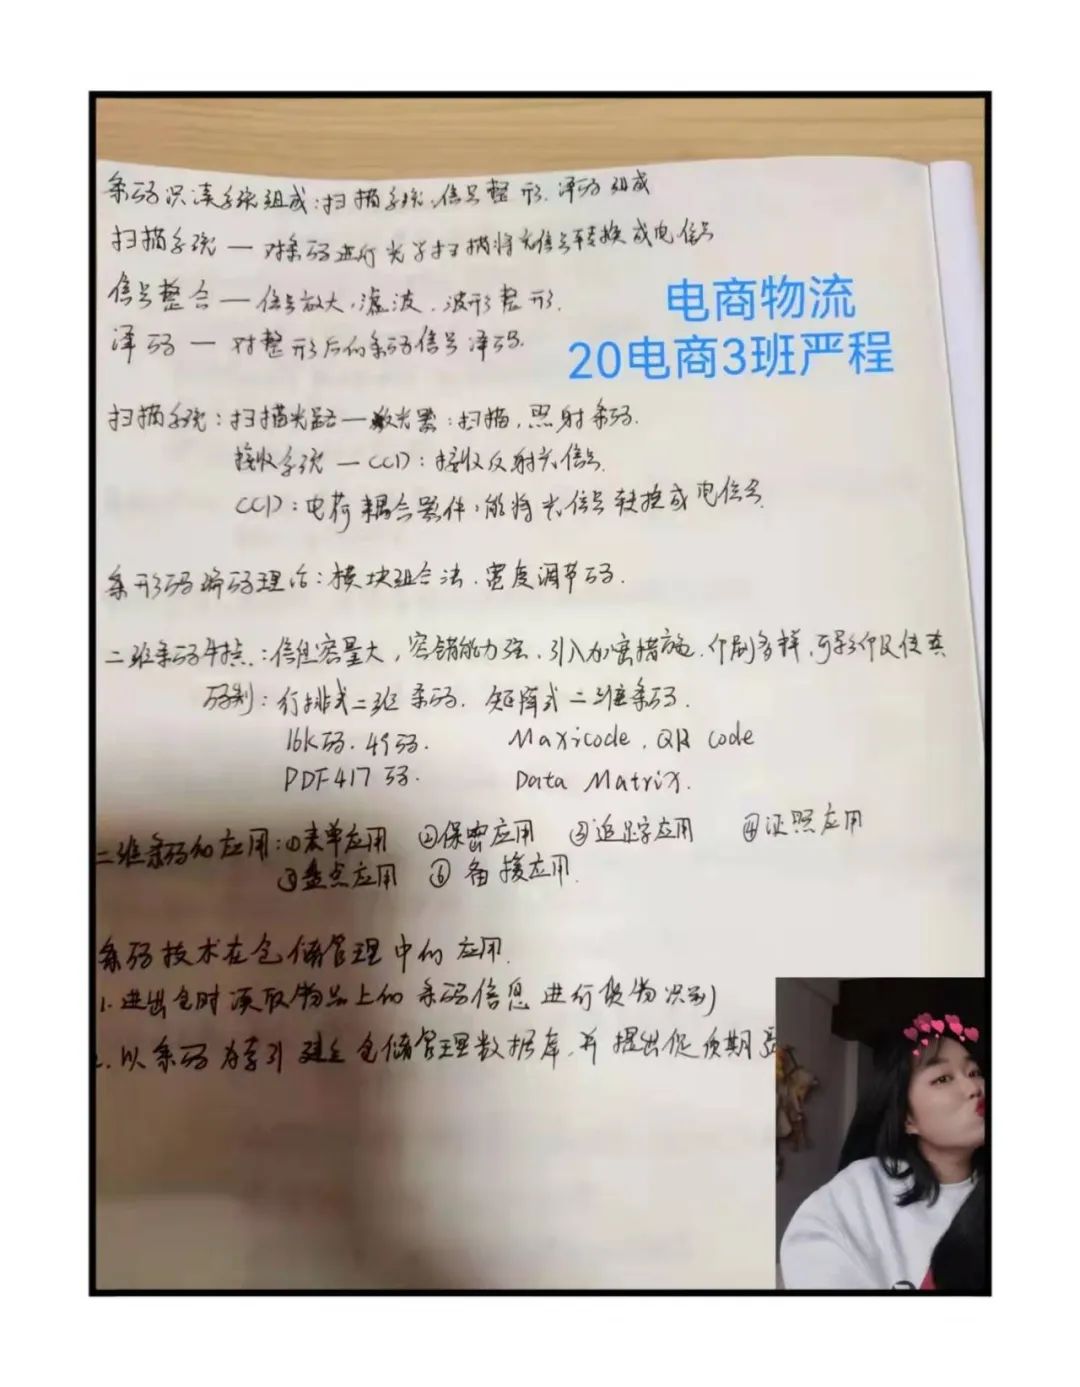 条码识读系统组成:扫描系统、信号整形、译码组成
扫描系统 — 对条码进行光学扫描将光信号转换成电信号
信号整合 — 信号放大、滤波、波形整形.
译码 — 对整形后的条码信号译码.
电商物流
20电商3班严程
扫描系统:扫描光路 — 激光器:扫描,照射条码.
接收系统 — CCD:接收反射光信号.
CCD:电荷耦合器件,能将光信号转换成电信号
条形码编码理论:模块组合法、宽度调节码.
二维条码特点:信息容量大,容错能力强、引入加密措施、印刷多样,可影印及传真
码制:行排式二维条码. 矩阵式二维条码.
16K码. 49码. Maxicode、QR code
PDF417码. Data Matrix.
二维条码的应用:①表单应用 ②保密应用 ③追踪应用 ④证照应用
⑤盘点应用 ⑥备援应用.
条码技术在仓储管理中的应用.
1.进出仓时读取物品上的条码信息进行货物识别
2.以条码为索引建立仓储管理数据库,并提出促预期